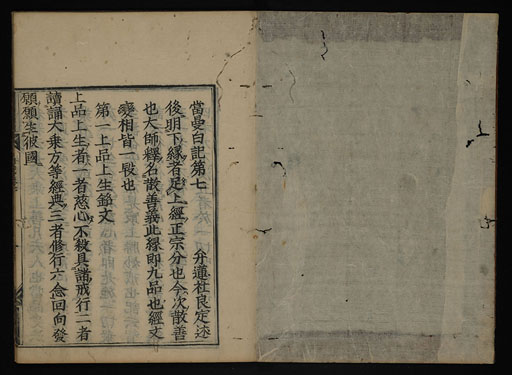 當曼白記第七
弁蓮社良定述
後明下縁者足上經正宗分也今次散善
也大師釋名散善義此縁即九品也經文
變相皆一段也
第一上品上生銘文
上品上生者一者慈心不殺具諸戒行二者
讀誦大乘方等經典三者修行六念回向發
願願生彼國